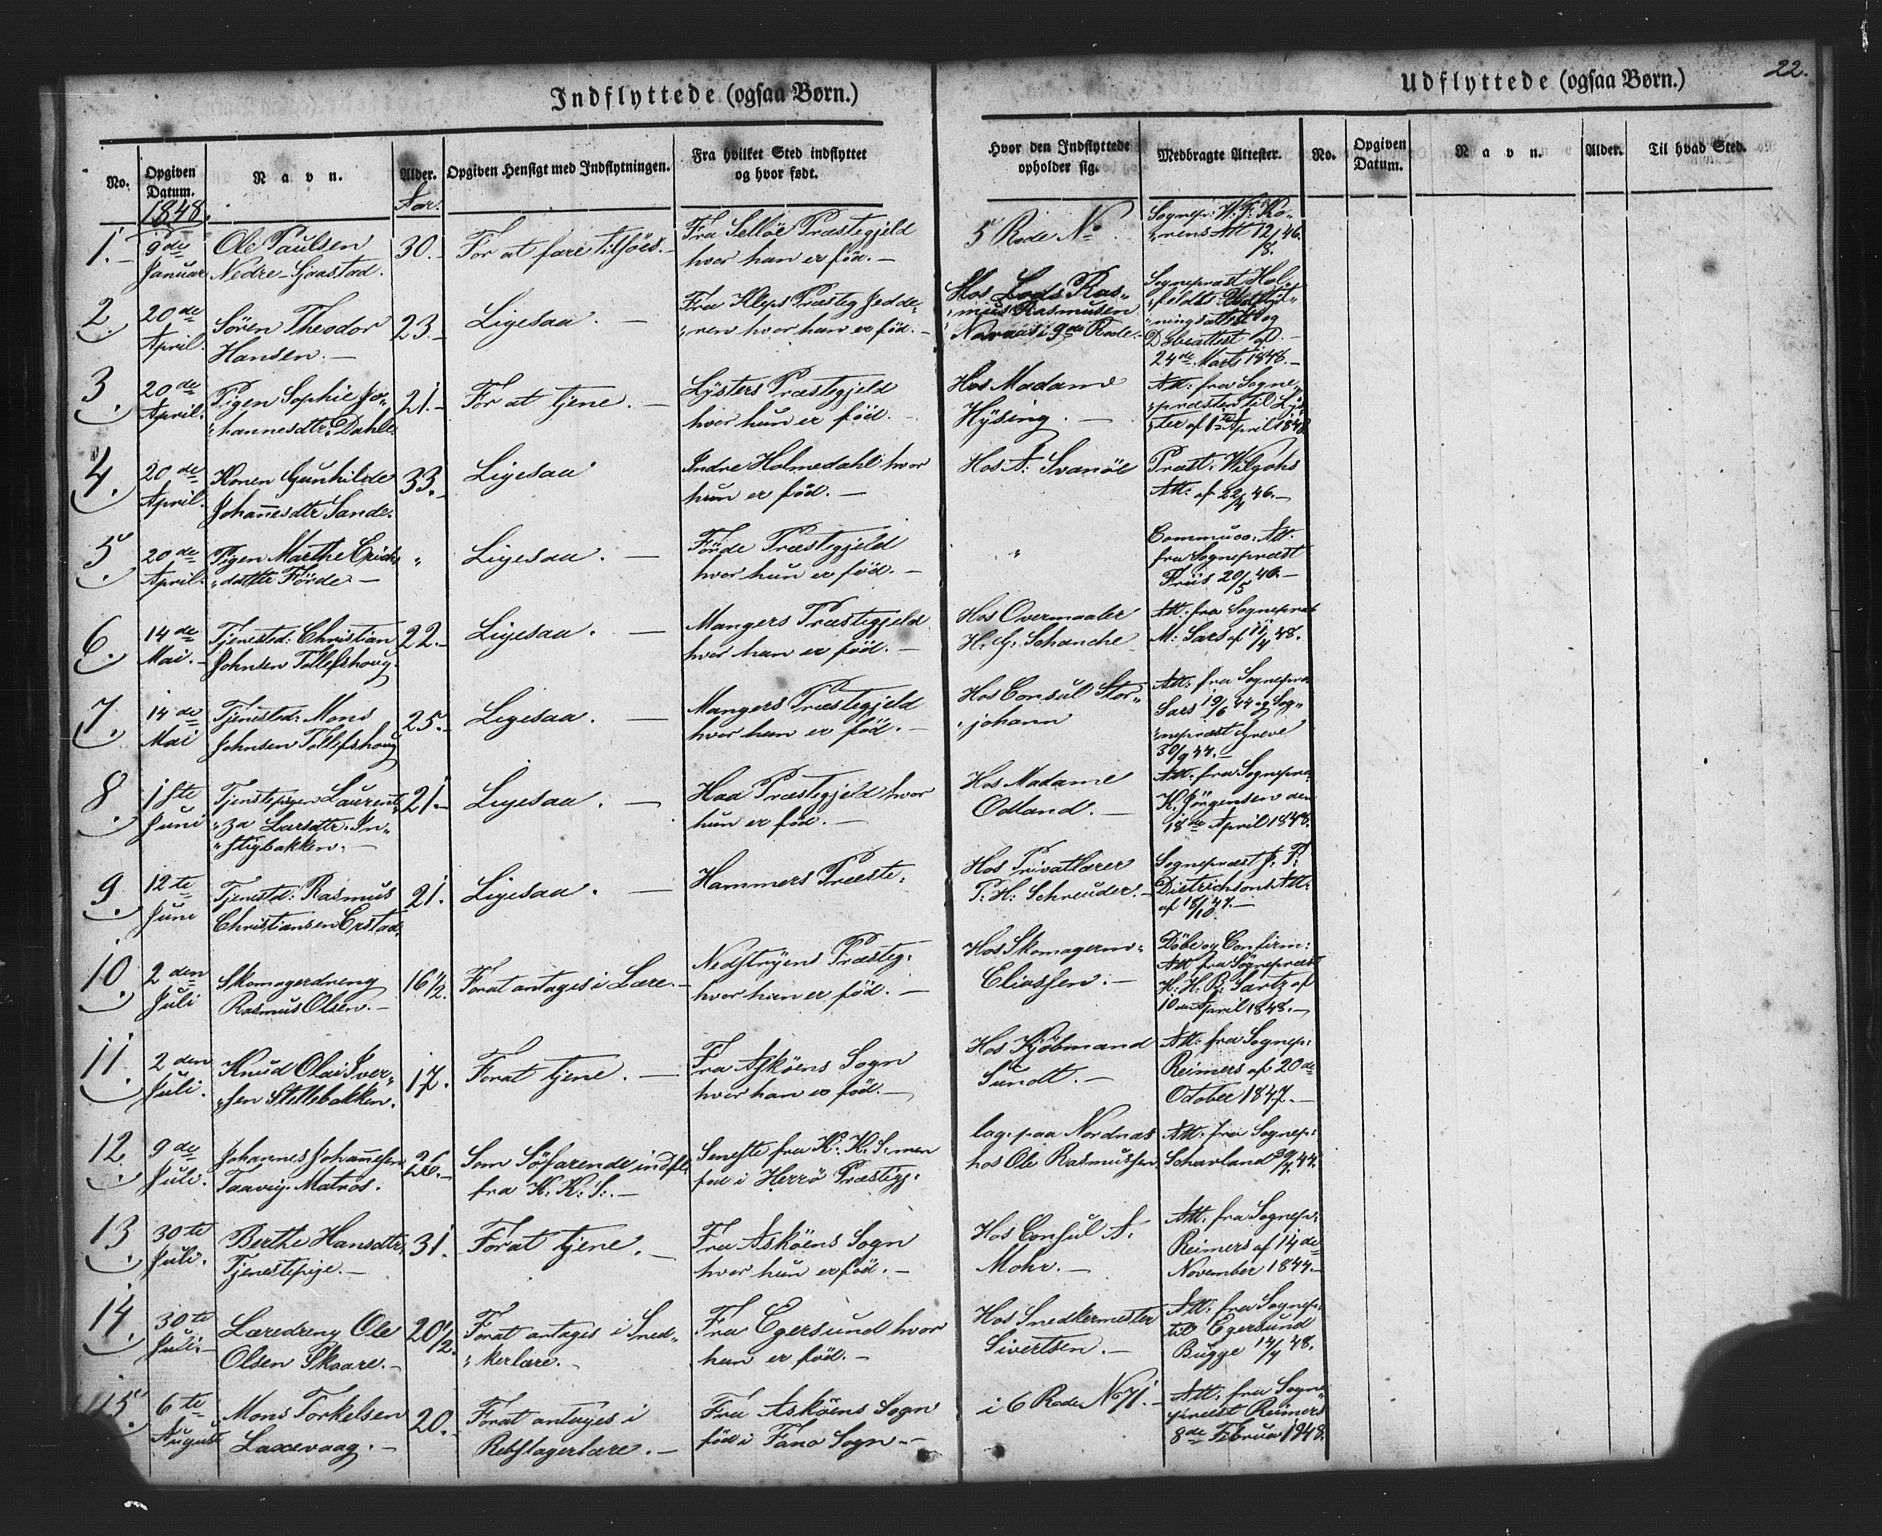 22.
Indflyttede (ogsaa Børn.)
Udflyttede (ogsaa Børn.)
No. Opgiven Datum. Navn. Alder. Opgiven Hensigt med Indflytningen. Fra hvilket Sted indflyttet og hvor født. Hvor den Indflyttede opholder sig. Medbragte Attester. No. Opgiven Datum. Navn. Alder. Til hvad Sted.
1848. Aar.
1. 9de Januar
Ole Paulsen
Nedre Gjaastad.
30.
For at fare tilsöes.
Fra Selløe Præstegjeld
hvor han er fød.
5 Rode No
Sognepr: W. F. Ko-
rens Att 12/8 46.
2. 20de April.
Sören Theodor
Hansen.
23.
Ligesaa.
Fra Kleps Præsteg Jedde-
ren hvor han er fød.
Hos Lods Ras-
mus Rasmusen
i 9de Rode.
Sognepræst Hol-
feldts
ningsattest og
Døbeattest af
24de Marts 1848.
3. 20de April.
Pigen Sophie Jo-
hannesdtr Dahle.
21.
For at tjene.
Lysters Præstegjeld
hvor hun er fød.
Hos Madame
Hysing.
Att: fra Sogne-
præsten til Lÿ-
ster af 1ste April 1848
4. 20de April.
Konen Gunhilde
Johannesdtr Sande.
33.
Ligesaa
Indre Holmedahl hvor
hun er fød.
Hos A: Svanöe
Præst: Wilgohs
Att: af 22/4 46.
5. 20de April.
Pigen Marthe Erichs-
datter Förde
"
Ligesaa.
Förde Præstegjeld
hvor hun er fød.
"
Communio: Att.
fra Sognepræst
Friis 20/5 46.
6. 14de Mai.
Tjenestd: Christian
Johnsen Tollefshoug.
22.
Ligesaa.
Mangers Præstegjeld
hvor han er fød.
Hos Overmaaler
H. G. Schanche
Att: fra Sognepræst
M: Sars af 11/4 48.
7. 14de Mai
Tjenestd: Mons
Johnsen Tollefshoug
25.
Ligesaa.
Mangers Præstegjeld
hvor han er fød.
Hos Consul Stor-
johann
Att: fra Sognepræ
Sars 19/6 44 og Sog-
nepræst Greve
30/9 44.
8. 18te Juni
Tjenestepigen Laurent-
za Larsdtr. In-
stigbakken.
21.
Ligesaa.
Haa Præstegjeld hvor
hun er fød.
Hos Madame
Odland.
Att: fra Sognepræ
K. Jörgensen den
18de April 1848.
9. 12te Juni
Tjenestd: Rasmus
Christiansen Erstad.
21.
Ligesaa.
Hammers Præste:
Hos Privatlærer
P. H. Schreuder.
Sognepræst J. P.
Dietrichsons Att:
af 18/10 47.
10. 2den Juli
Skomagerdreng
Rasmus Olsen.
16 1/2.
Forat antages i Lære.
Nedstryens Præsteg:
hvor han er fød.
Hos Skomagerm-
Eliassen.
Döbe og Confirm:
Att fra Sognepræst
H. H. B. Sartz af
10de April 1848.
11. 2den Juli.
Knud Olai Iver-
sen Stellebakken.
17.
Forat tjene.
Fra Askøens Sogn
hvor han er fød.
Hos Kjöbmand
Sundt.
Att: fra Sognep:
Reimers af 20de
October 1847.
12. 9de Juli.
Johannes Johannesen
Taavig. Matros.
26.
Som Söfarende indfl:
fra K. K. S.
Seneste fra K. K. S. men
fød i Herrö Præstegj.
lag: paa Nordnæs
hos Ole Rasmussen
Att. fra Sognep:
Schavland
13. 30te Juli.
Berthe Hansdtr
Tjenestepige.
31.
Forat tjene.
Fra Askøens Sogn
hvor hun er fød.
Hos Consul A:
Mohr.
Att: fra Sognep:
Reimers af 14de
November 1844.
14. 30te Juli.
Læredreng Ole
Olsen Skaare.
20 1/2.
Forat antages i Sned-
kerlære.
Fra Egersund hvor
han er fød.
Hos Snedkermester
Sivertsen.
Att: fra Sognep:
til Egersund
Bugge 14/4 48.
15. 6te August
Mons Torkelsen
Laxevaag.
20.
Forat antages i
Rebslagerlære.
Fra Askøens Sogn
fød i Fanø Sogn.
i 6 Rode No 71.
Att: fra Sogne-
præst Reimers
8de Februar 1848.